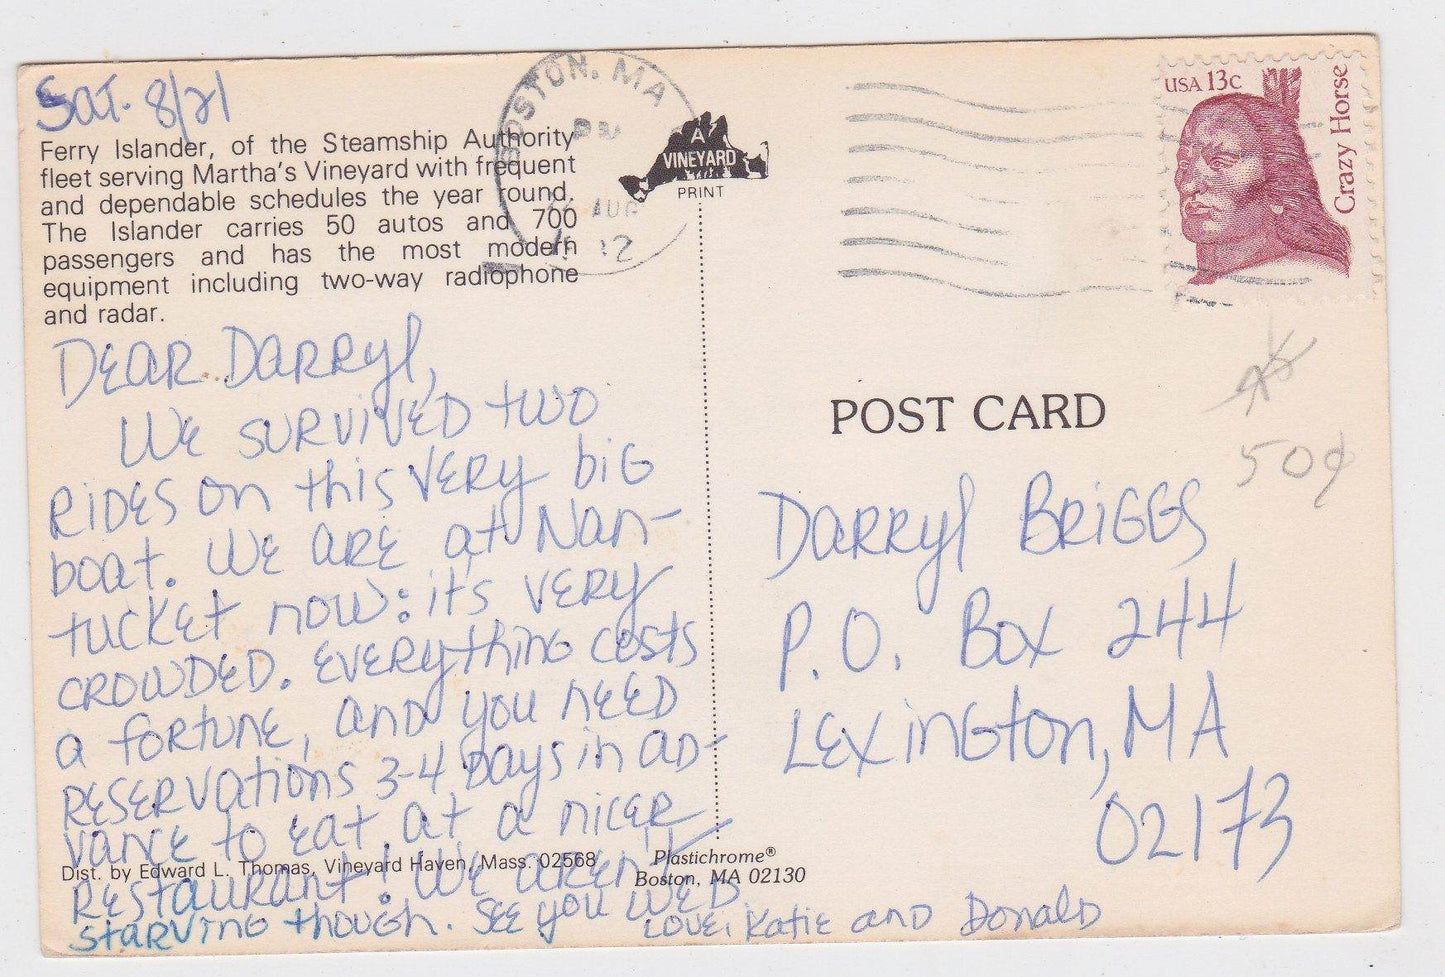 Sat. 8/21
Ferry Islander, of the Steamship Authority
fleet serving Martha's Vineyard with frequent
and dependable schedules the year round.
The Islander carries 50 autos and 700
passengers and has the most modern
equipment including two-way radiophone
and radar.
Dear Darryl,
We survived two
rides on this very big
boat. We are at Nan-
tucket now: it's very
crowded. Everything costs
a fortune, and you need
reservations 3-4 days in ad-
vance to eat at a nicer
Dist. by Edward L. Thomas, Vineyard Haven, Mass. 02568
restaurant! We aren't
starving though. See you Wed
Love, Katie and Donald
BOSTON, MA
PM
AUG
A
VINEYARD
PRINT
Plastichrome®
Boston, MA 02130
USA 13c
Crazy Horse
50¢
POST CARD
Darryl Briggs
P.O. Box 244
Lexington, MA
02173